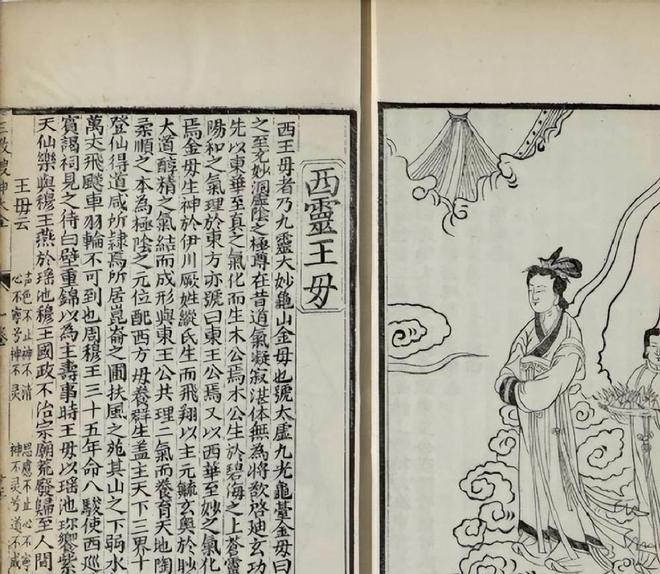 西靈王母
西王母者乃九靈大妙龜山金母也號大虛九光龜臺金母曰
之至妙洞靈陰之極尊在昔道氣凝寂湛体無為將欲啓迪玄功
先以東華至真之氣化而生木公焉木公生於碧海之上蒼靈
陽和之氣理於東方亦號曰東王公焉又以西華至妙之氣化
焉金母生神於伊川厥姓緱氏生而飛翔以主元毓玄奥於眇
大道醇精之氣結而成形與東王公共理二氣而養育天地陶
柔順之本為極陰之元位配西方母養群生盖主天下三界十
登仙得道咸所隸焉所居崑崙之圃扶風之苑其山之下弱水
萬丈飛飇車羽輪不可到也周穆王三十五年命八駿使西巡
賓謁祠見之待白璧重錦以為王壽事時王母以瑶池饗紫
天仙樂與穆王燕於瑶池穆王國政不治宗廟荒廢歸至人間
王母云
声色不止神不清 思慮不止心不寧
心不寧兮神不灵 神不灵兮道不成
一卷